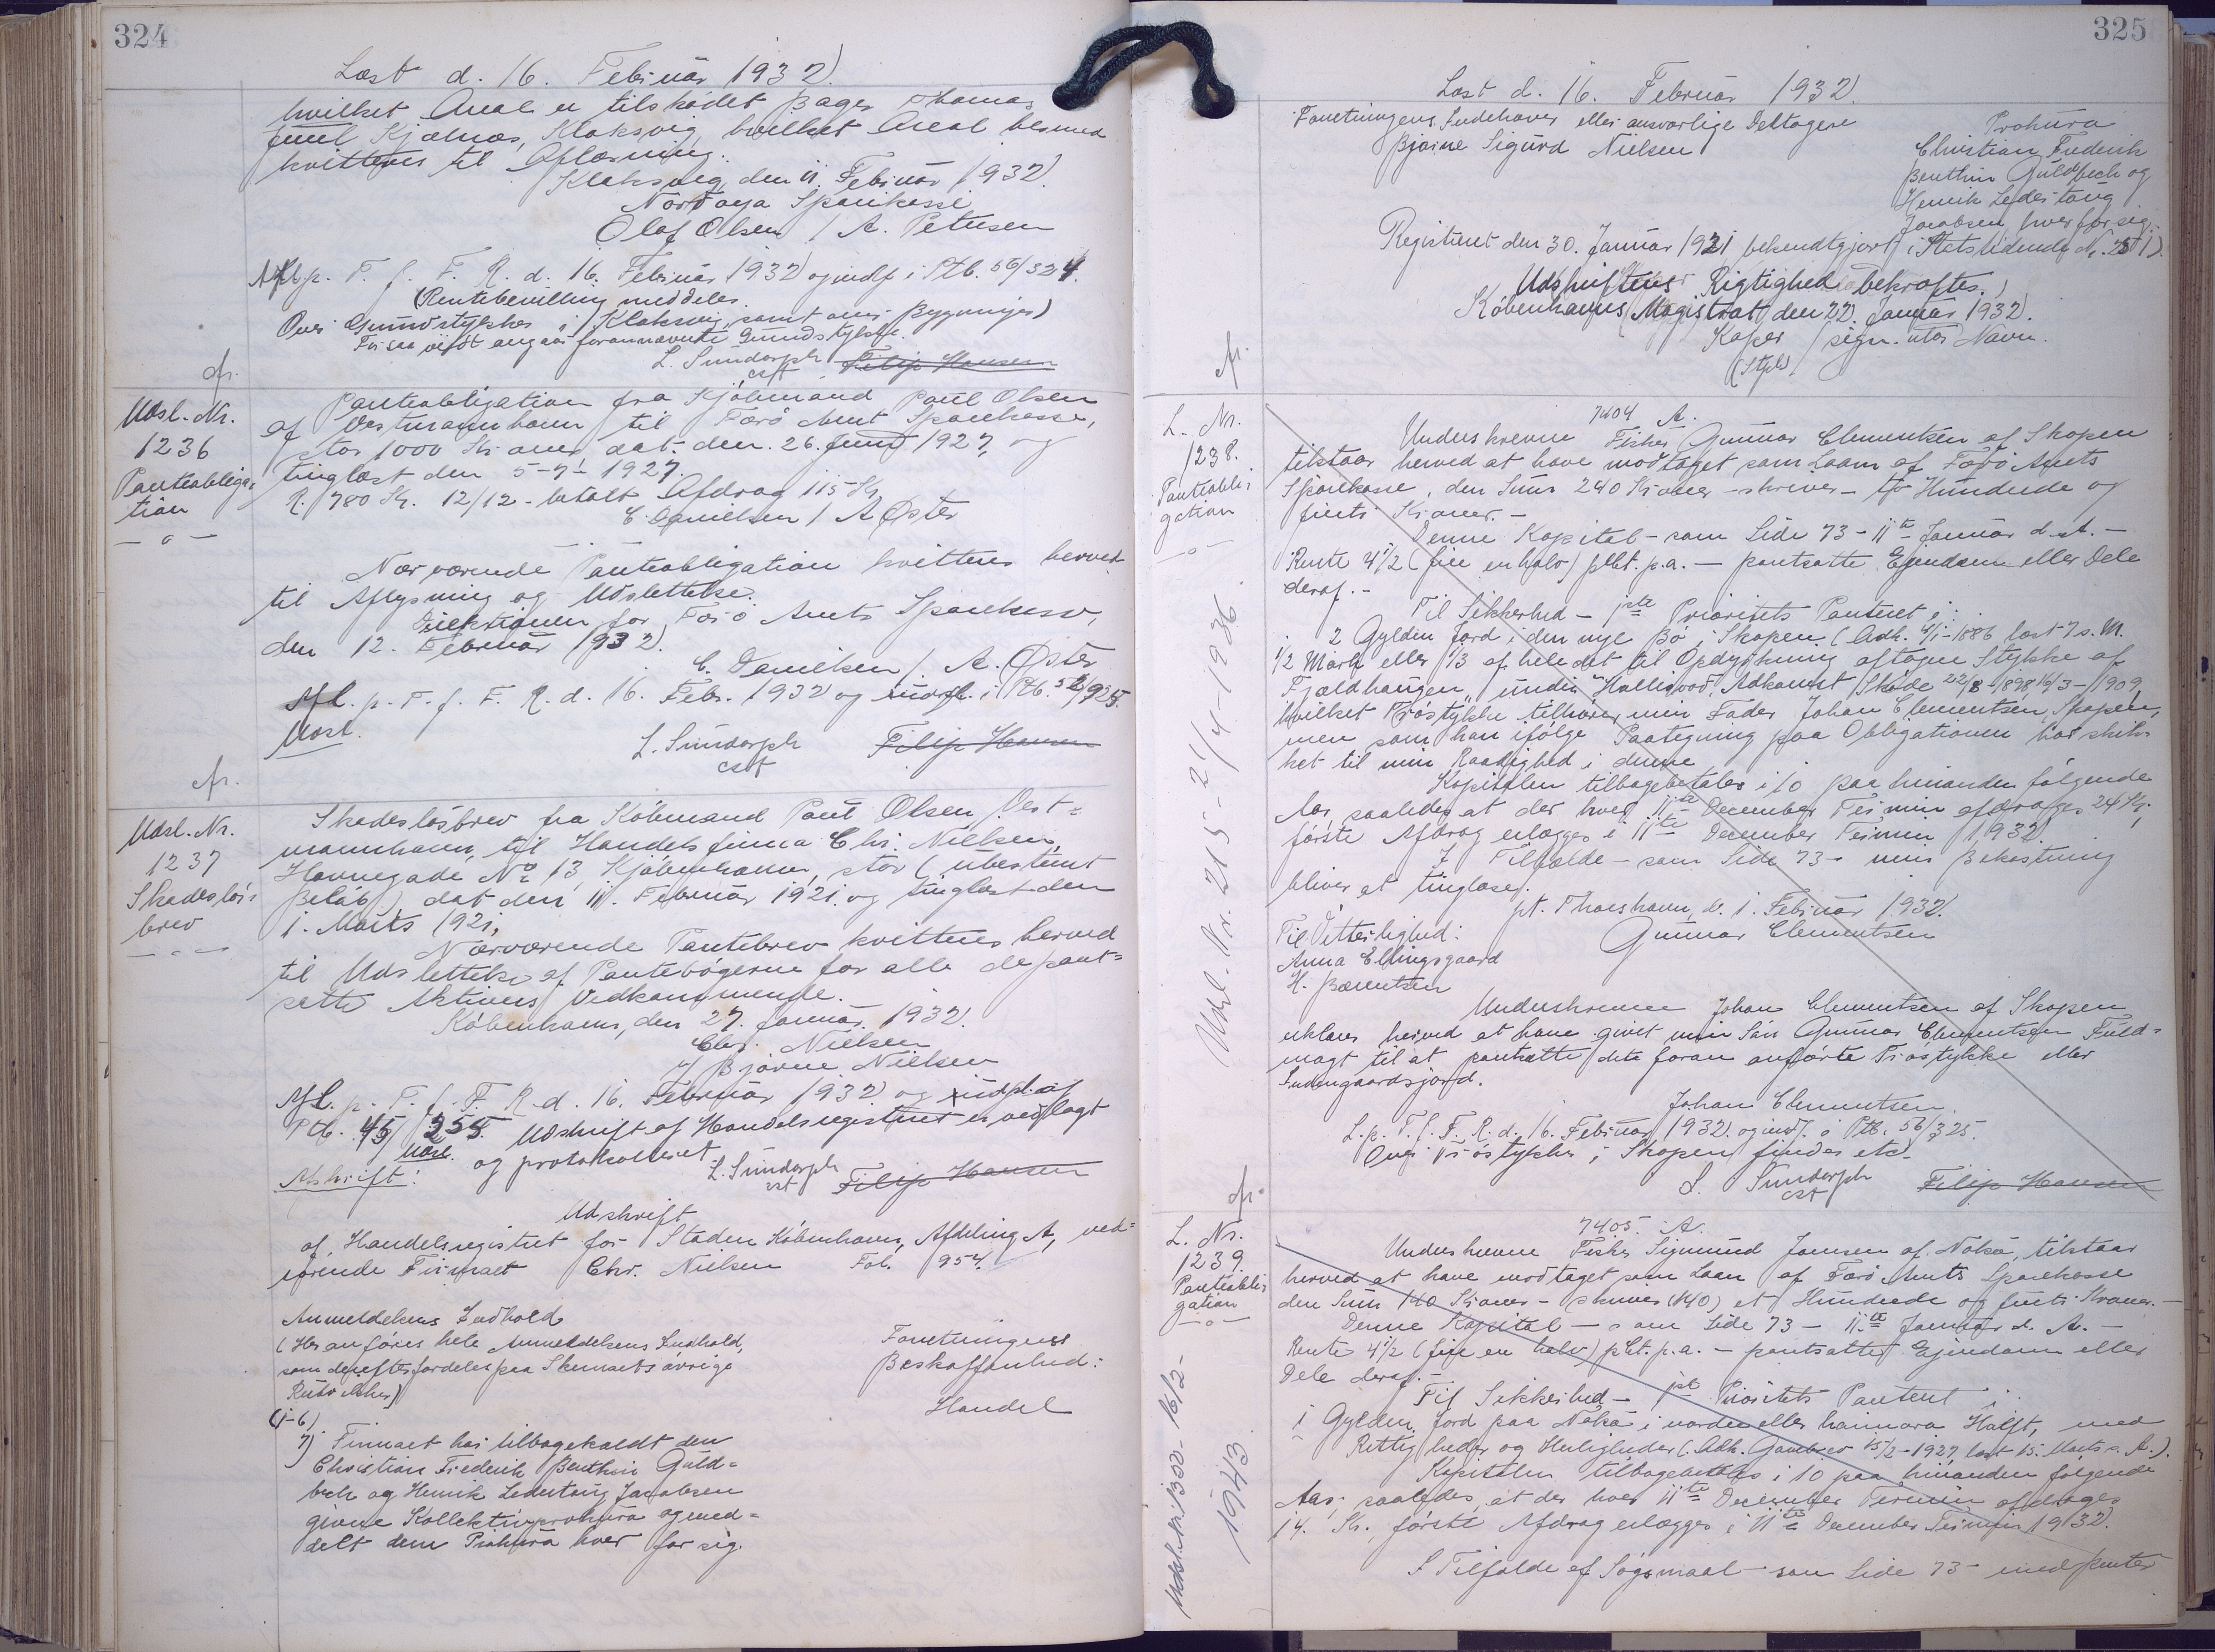 324
Læst d. 16. Februar 1932.
hvilket Areal er tilskødet Bager Thomas
Juul Kjølnæs, Klaksvig, hvilket Areal herved
kvitteres til Aflæsning.
Klaksvig, den 11. Februar 1932.
Norðoya Sparikassi
Olaf Olsen / A. Petersen
Afl. p. T. f. F. R. d. 16. Februar 1932 og indf. i Ptb. 56/324.
(Rentebevilling meddeles.
Over Grundstykker i Klaksvig samt over Bygninger)
For saa vidt angaar forannævnte Grundstykke.
L. Sundorph Filip Hansen
cst
cfr.
Udsl. Nr.
1236
Panteobliga-
tion
— o —
Panteobligation fra Kjøbmand Paul Olsen
af Vestmannhavn til Færø Amt Sparekasse,
stor 1000 Kroner, dat. den 26. Juni 1927, og
tinglæst den 5-7-1927.
R. 780 Kr. 12/12 - betalt Afdrag 115 Kr.
C. Danielsen / A. Øster
Nærværende Panteobligation kvitteres herved
til Aflysning og Udslettelse.
Direktionen for Færø Amts Sparekasse,
den 12. Februar 1932.
C. Danielsen / A. Øster
Afl. p. T. f. F. R. d. 16. Febr. 1932 og indf. i Ptb.
Udsl.
L. Sundorph Filip Hansen
cst
cfr.
Udsl. Nr.
1237
Skadesløs-
brev
— o —
Skadesløsbrev fra Købmand Paul Olsen, Vest-
mannhavn, til Handelsfirma Chr. Nielsen,
Havnegade No 13, Kjøbenhavn, stor (ubestemt
Beløb), dat. den 11. Februar 1921. og tinglæst den
1. Marts 1921,
Nærværende Pantebrev kvitteres herved
til Udslettelse af Pantebøgerne for alle de pant-
satte Aktivers Vedkommende.
Københavns, den 27. Januar 1932.
Chr. Nielsen
Bjørne Nielsen
Afl. p. T. f. F. R. d. 16. Februar 1932 og indf. af
Ptb. 45/255. Udskrift af Handelsregistret er vedlagt
Udsl. og protokolleret.
L. Sundorph Filip Hansen
cst
Afskrift:
Udskrift
af Handelsregistret for Staden København, Afdeling A, ved-
rørende Firmaet Chr. Nielsen Fol. 954.
Anmeldelsens Indhold
(Her anføres hele Anmeldelsens Indhold,
som derefter fordeles paa Skemaets øvrige
Rubrikker)
Forretningens
Beskaffenhed:
Handel
(1-6)
7) Firmaet har tilbagekaldt den
Christian Frederik Benthin Guld-
bech og Henrik Ledertoug Jacobsen
givne Kollektivprokura og med-
delt dem Prokura hver for sig.
325
Læst d. 16. Februar 1932.
Forretningens Indehaver eller ansvarlige Deltagere
Bjørne Sigurd Nielsen
Prokura
Christian Frederik
Benthin Guldbech og
Henrik Ledertoug
Jacobsen, hver for sig.
Registreret den 30. Januar 1921, bekendtgjort i Statstidende Nr.
Udskriftens Rigtighed bekræftes.
Københavns Magistrat, den 22. Januar 1932.
Kaper / sign. utyd. Navn.
(Stpl.)
cfr.
L. Nr.
1238.
Panteobli-
gation
— o —
Udsl. Nr. 215 - 21/4 - 1936.
7404 A.
Underskrevne Fisker Gunnar Clementsen af Skopen
tilstaar herved at have modtaget som Laan af Færø Amts
Sparekasse, den Sum 240 Kroner - skriver - to Hundrede og
firti Kroner. -
Denne Kapital - som Side 73 - 11te Januar d. A. -
Rente 4 1/2 (fire en halv) pCt. p.a. — pantsatte Ejendom eller Dele
deraf. -
Til Sikkerhed - 1ste Prioritets Panteret i:
2 Gylden Jord i den nye Bø i Skopen (Adk. 4/1-1886 læst 7 s. M.
1/2 Mark eller 1/3 af hele det til Opdyrkning aftagne Stykke af
Fjældhaugen, under Adkomst Skøde 22/8-1898, 16/3-1909,
hvilket Trøstykke tilhører min Fader Johan Clementsen, Skopen,
men som han ifølge Paategning paa Obligationen har skik-
ket til min Raadighed i denne
Kapitalen tilbagebetales i 10 paa hinanden følgende
Aar, saaledes at der hver 11te December Termin afdrages 24 Kr.,
første Afdrag erlægges i 11te December Termin 1932.
I Tilfælde - som Side 73 - min Bekostning
bliver at tinglæse.
pt. Thorshavn, d. 1. Februar 1932.
Til Vitterlighed: Gunnar Clementsen
Anna Ellingsgaard
H. Bærentsen
Underskrevne Johan Clementsen af Skopen
erklærer herved at have givet min Søn Gunnar Clementsen Fuld-
magt til at pantsætte det foran anførte Trøstykke eller
Indengaardsjord.
Johan Clementsen.
L. p. T. f. F. R. d. 16. Februar 1932. og indf. i Ptb. 56/325.
Over Trøstykke i Skopen findes etc.
L. Sundorph Filip Hansen
cst
cfr.
L. Nr.
1239.
Panteobli-
gation
— o —
1943.
7405 A.
Underskrevne Fisker Sigmund Joensen af Nolsø, tilstaar
herved at have modtaget som Laan af Færø Amts Sparekasse
den Sum 140 Kroner - skriver (140) et Hundrede og firti Kroner. —
Denne Kapital — som Side 73 — 11te Januar d. A. —
Rente 4 1/2 (fire en halv) pCt. p.a. — pantsatte Ejendom eller
Dele deraf. -
Til Sikkerhed - 1ste Prioritets Panteret i:
1 Gylden Jord paa Nolsø i nordre eller haimara Halft, med
Rettigheder og Herligheder (Adk. Gavebrev 15/2-1927, læst 15. Marts s. A.).
Kapitalen tilbagebetales i 10 paa hinanden følgende
Aar, saaledes, at der hver 11te December Termin afdrages
14. Kr., første Afdrag erlægges i 11te December Termin 1932.
I Tilfælde af Søgsmaal - som Side 73 - med Renter